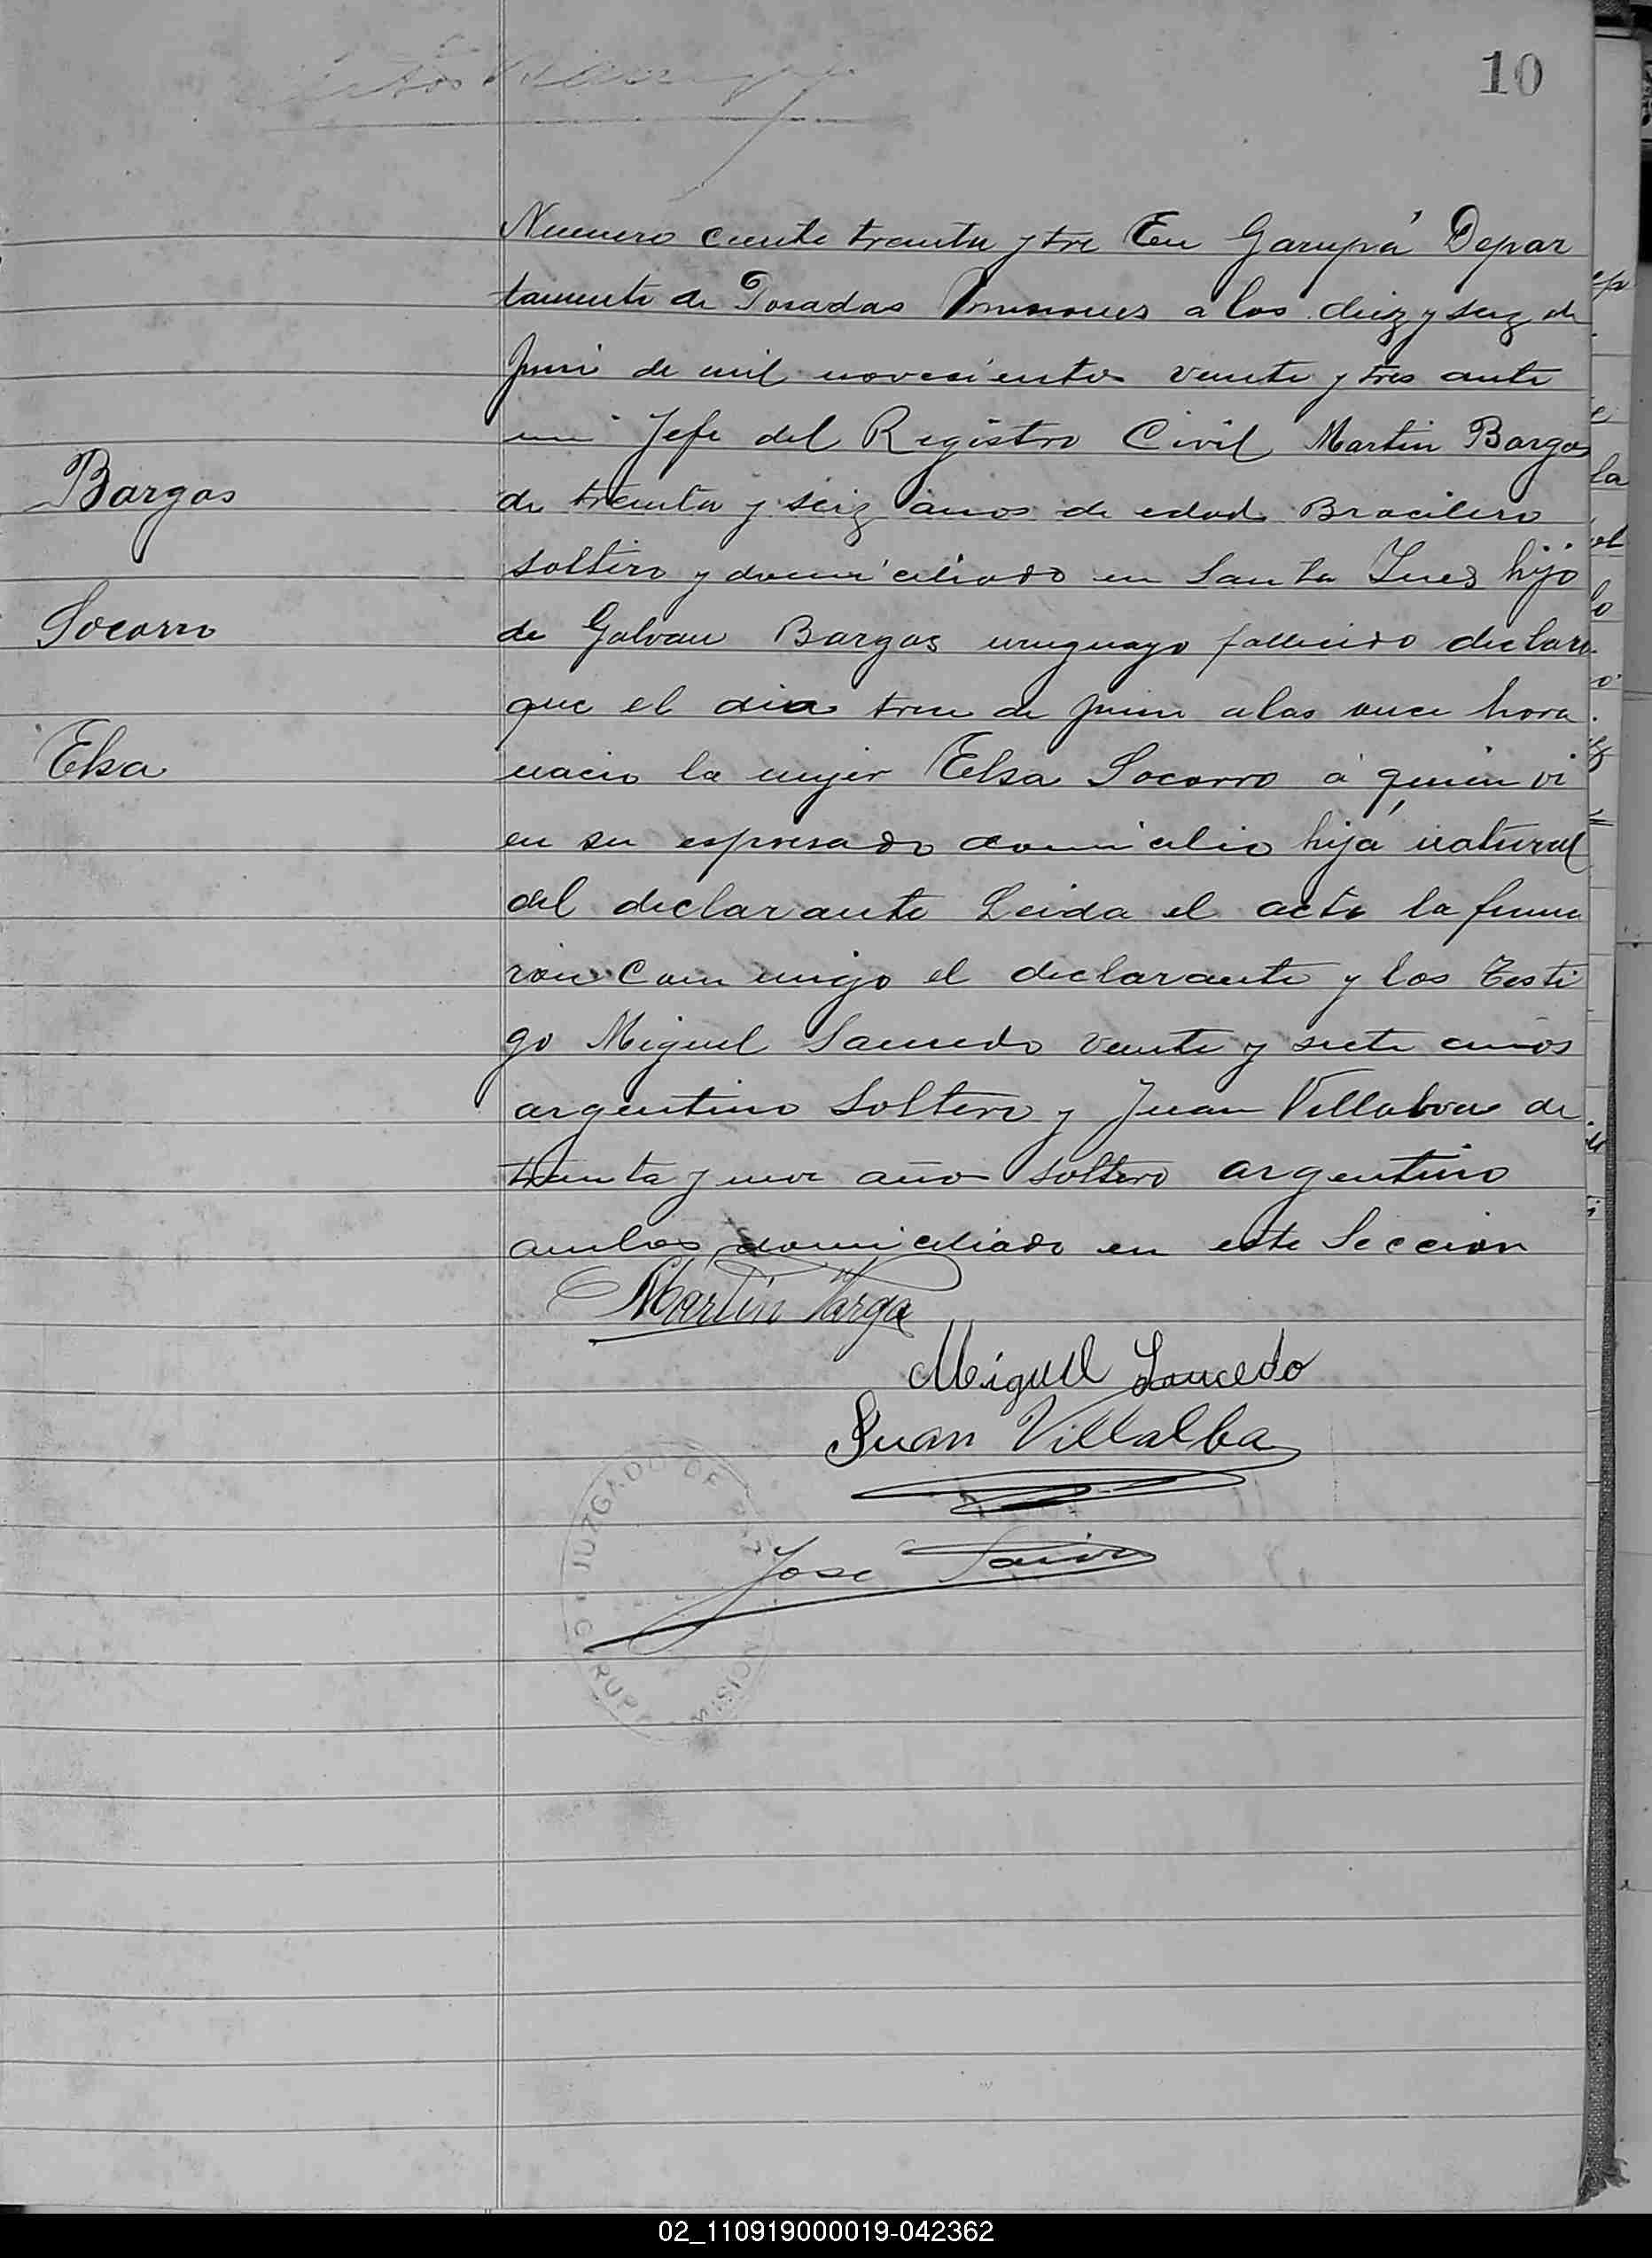 10
Numero ciento treinta y tre En Garupá Depar
tamento de Posadas Misiones a los diez y seiz de
Juni de mil novecientos veinte y tres ante
mi Jefe del Registro Civil Martin Bargas
Bargas
de treinta y seiz años de edad Bracilero
soltero y domiciliado en Santa Ines hijo
Socorro
de Galvan Bargas uruguayo fallecido declaro
que el dia trece de Junio a las once hora
Elsa
nacio la mujer Elsa Socorro á quien vi
en su espresado domicilio hija natural
del declarante Leida el acta la firma
ron Conmigo el declarante y los Testi
go Miguel Saucedo veinte y siete años
argentino Soltero y Juan Villalva de
treinta y años soltero argentino
ambos domiciliado en este Seccion
Martin Varga
Miguel Saucedo
Juan Villalba
Jose
JUZGADO DE PAZ
GARUP
MISION
02_110919000019-042362